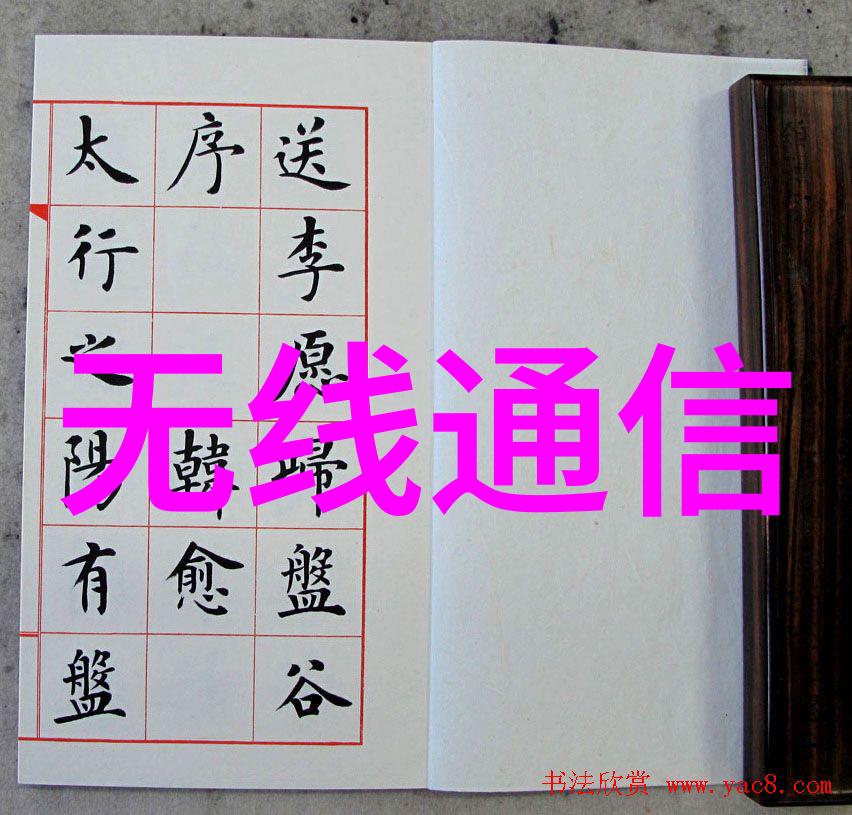 送李愿歸盤谷
序 韓愈
太行之陽有盤
无线通信
书法欣赏 www.yac8.com